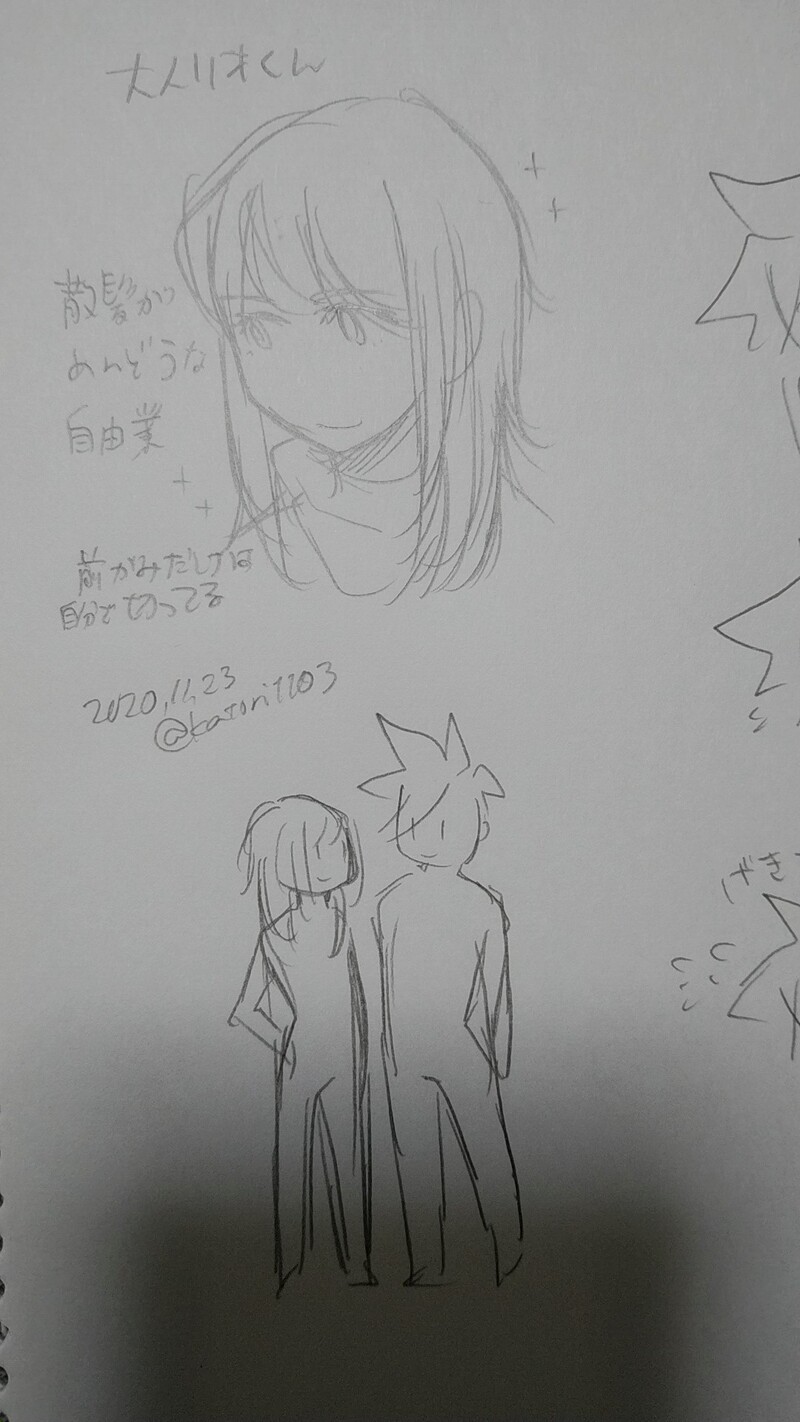 大人リオくん
散髪が
めんどうな
自由業
前がみだけは
自分で切ってる
2020.11.23
@katori1103
げき